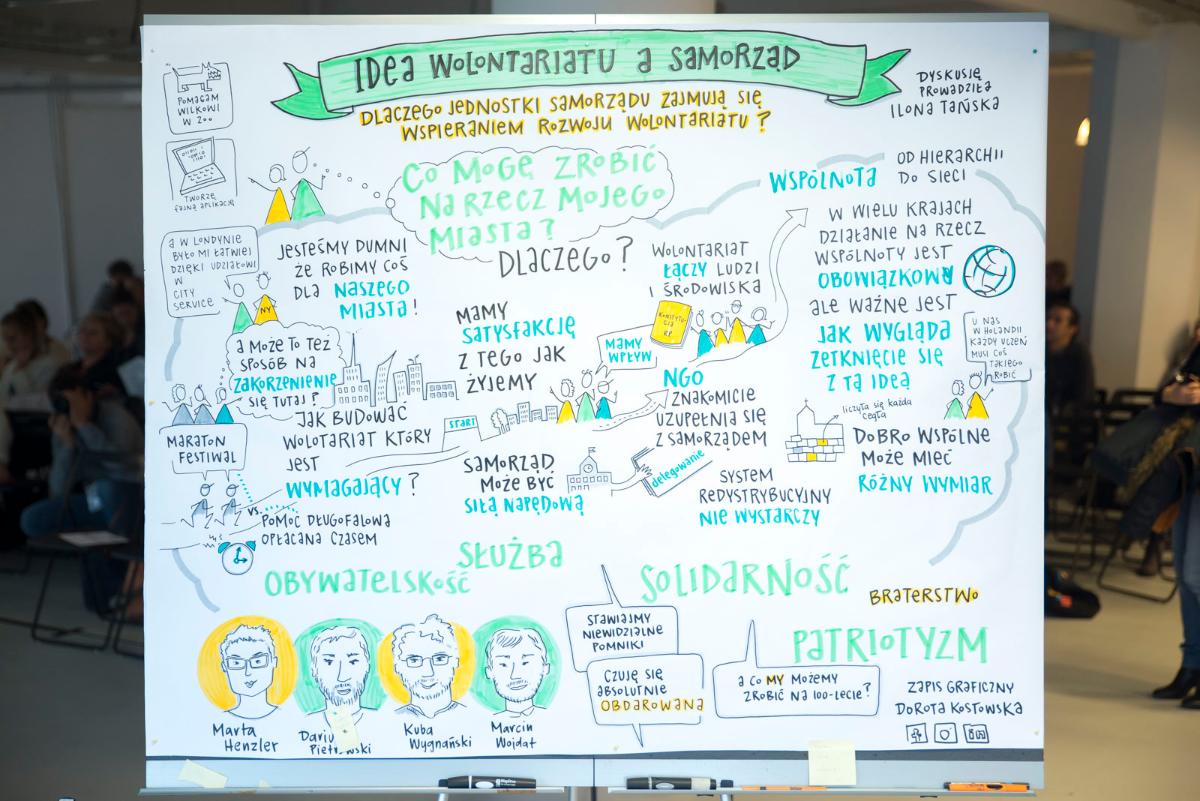 IDEA WOLONTARIATU A SAMORZĄD
DLACZEGO JEDNOSTKI SAMORZĄDU ZAJMUJĄ SIĘ
WSPIERANIEM ROZWOJU WOLONTARIATU?
DYSKUSJĘ
PROWADZIŁA
ILONA TAŃSKA
POMAGAM
WILKOWI
W ZOO
TWORZĘ
FAJNĄ APLIKACJĘ
CO MOGĘ ZROBIĆ
NA RZECZ MOJEGO
MIASTA?
DLACZEGO?
A W LONDYNIE
BYŁO MI ŁATWIEJ
DZIĘKI UDZIAŁOWI
W
CITY
SERVICE
NY
JESTEŚMY DUMNI
ŻE ROBIMY COŚ
DLA NASZEGO
MIASTA!
A MOŻE TO TEŻ
SPOSÓB NA
ZAKORZENIENIE
SIĘ TUTAJ?
MAMY
SATYSFAKCJĘ
Z TEGO JAK
ŻYJEMY
WOLONTARIAT
ŁĄCZY LUDZI
I ŚRODOWISKA
KONSTYTU
CJA
RP
MAMY
WPŁYW
WSPÓLNOTA
OD HIERARCHII
DO SIECI
W WIELU KRAJACH
DZIAŁANIE NA RZECZ
WSPÓLNOTY JEST
OBOWIĄZKOWE
ALE WAŻNE JEST
JAK WYGLĄDA
ZETKNIĘCIE SIĘ
Z TĄ IDEĄ
U NAS
W HOLANDII
KAŻDY UCZEŃ
MUSI COŚ
TAKIEGO
ROBIĆ
MARATON
FESTIWAL
VS.
POMOC DŁUGOFALOWA
OPŁACANA CZASEM
JAK BUDOWAĆ
WOLOTARIAT KTÓRY
JEST
WYMAGAJĄCY?
START
SAMORZĄD
MOŻE BYĆ
SIŁĄ NAPĘDOWĄ
NGO
ZNAKOMICIE
UZUPEŁNIA SIĘ
Z SAMORZĄDEM
delegowanie
SYSTEM
REDYSTRYBUCYJNY
NIE WYSTARCZY
liczyła się każda
cegła
DOBRO WSPÓLNE
MOŻE MIEĆ
RÓŻNY WYMIAR
OBYWATELSKOŚĆ
SŁUŻBA
SOLIDARNOŚĆ
BRATERSTWO
PATRIOTYZM
STAWIAJMY
NIEWIDZIALNE
POMNIKI
CZUJĘ SIĘ
ABSOLUTNIE
OBDAROWANA
A CO MY MOŻEMY
ZROBIĆ NA 100-LECIE?
Marta
Henzler
Kuba
Wygnański
Marcin
Wojdat
ZAPIS GRAFICZNY
DOROTA KOSTOWSKA